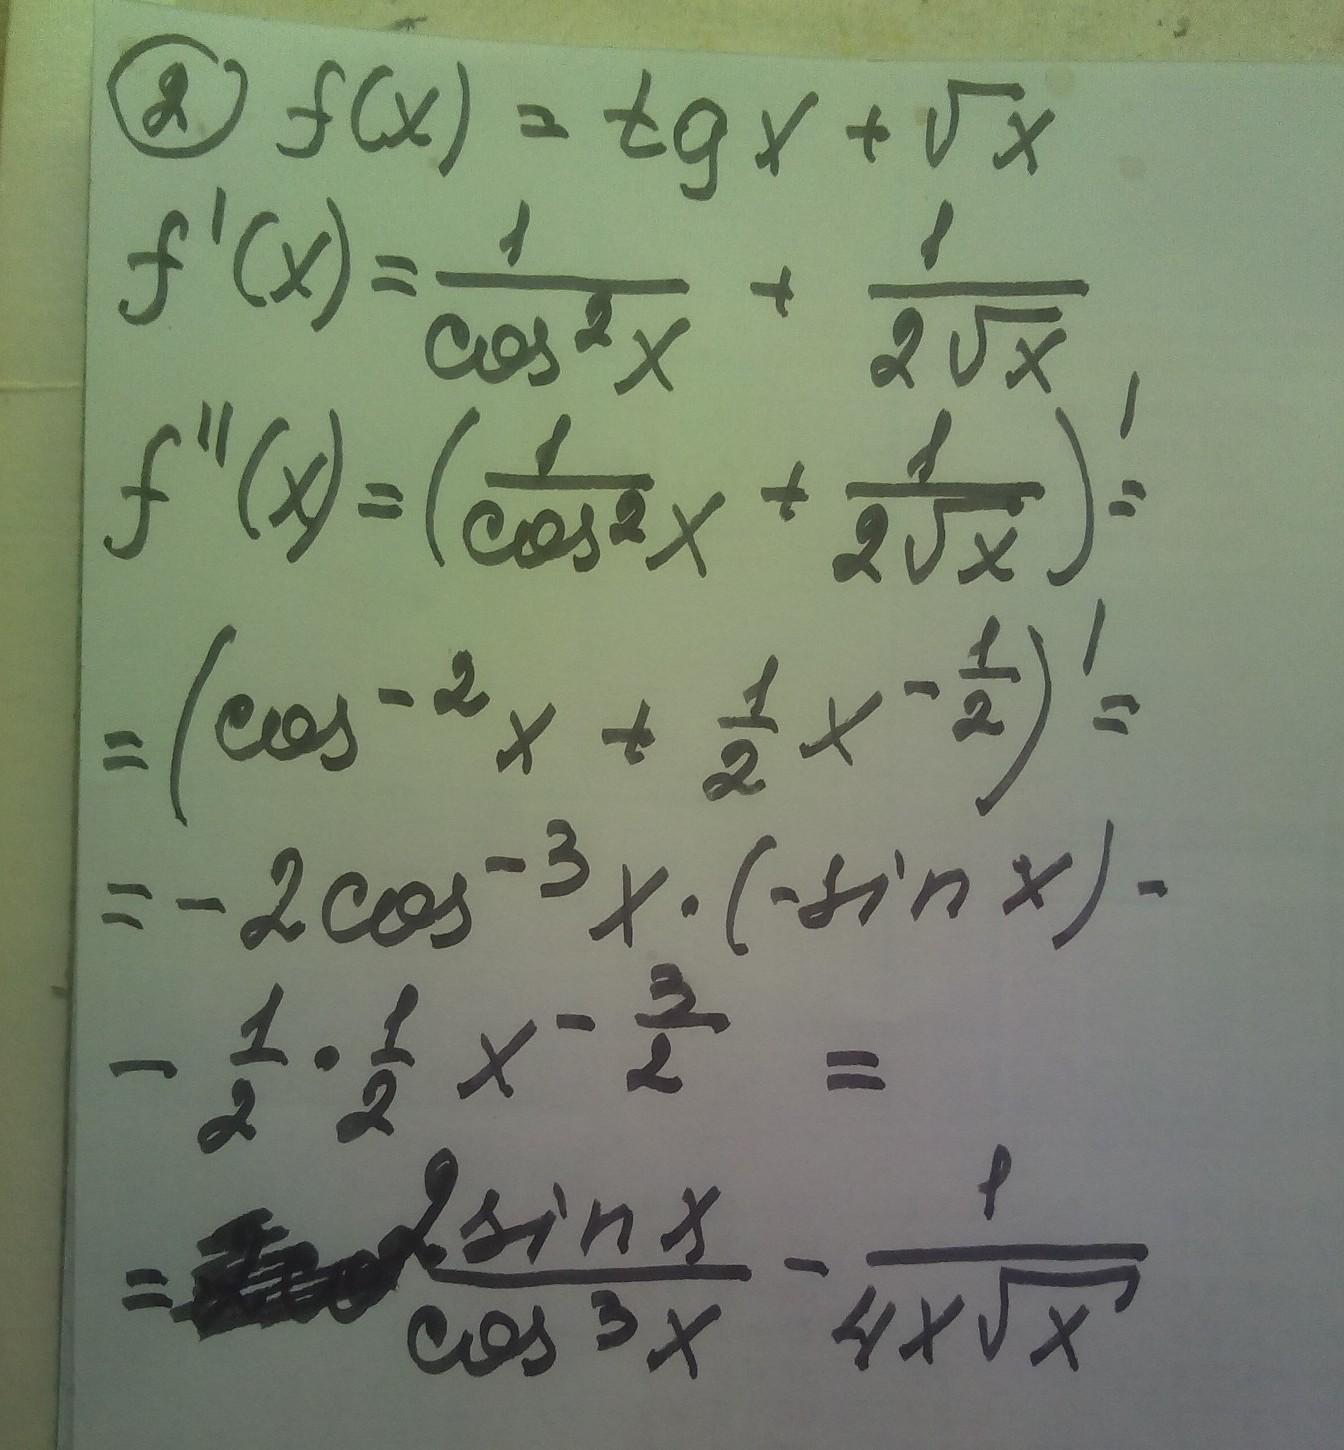 ② f(x) = tg x + √x
f'(x) = 1/cos²x + 1/(2√x)
f''(x) = (1/cos²x + 1/(2√x))' =
= (cos⁻²x + 1/2 x^(-1/2))' =
= -2cos⁻³x · (-sin x) -
- 1/2 · 1/2 x^(-3/2) =
= 2sin x/cos³x - 1/(4x√x)